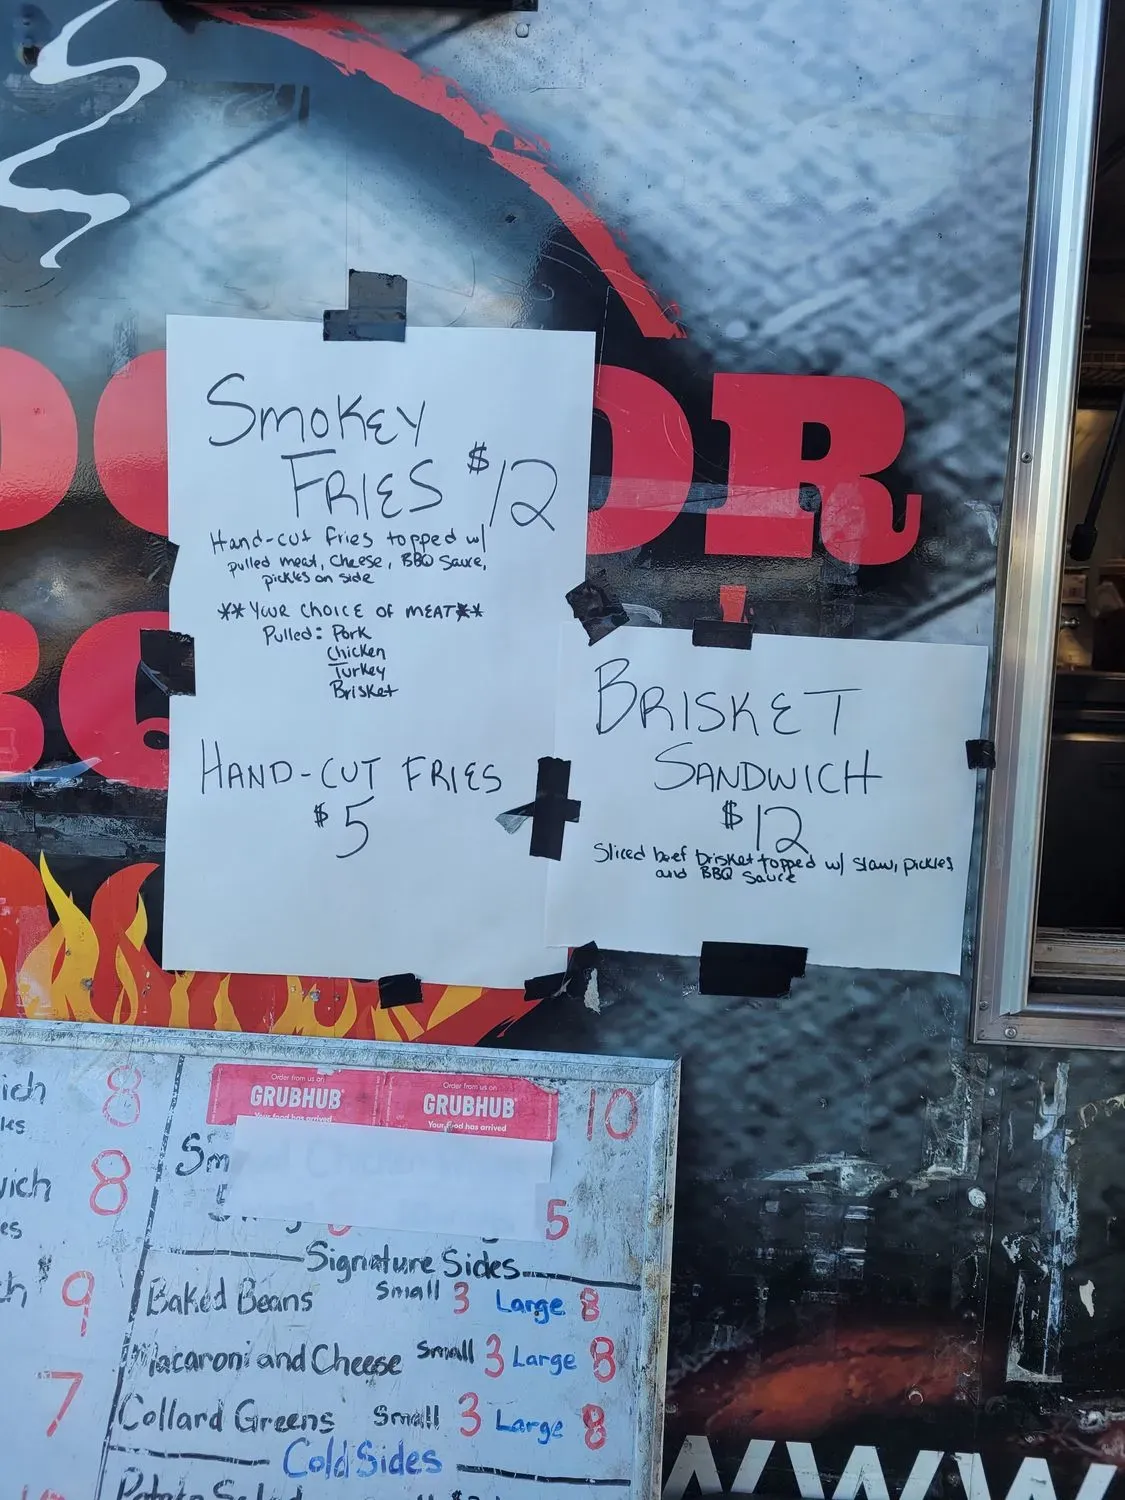 SMOKEY
FRIES $12
Hand-cut fries topped w/
pulled meat, cheese, BBQ Sauce,
pickles on side
**YOUR CHOICE OF MEAT**
Pulled: Pork
Chicken
Turkey
Brisket
HAND-CUT FRIES
$5
BRISKET
SANDWICH
$12
Sliced beef brisket topped w/ slaw, pickles
and BBQ Sauce
OR
8
8
9
7
Order from us on
GRUBHUB
Your food has arrived
Order from us on
GRUBHUB
Your food has arrived
10
5
Signature Sides
Baked Beans Small 3 Large 8
Macaroni and Cheese Small 3 Large 8
Collard Greens Small 3 Large 8
Cold Sides
WWW